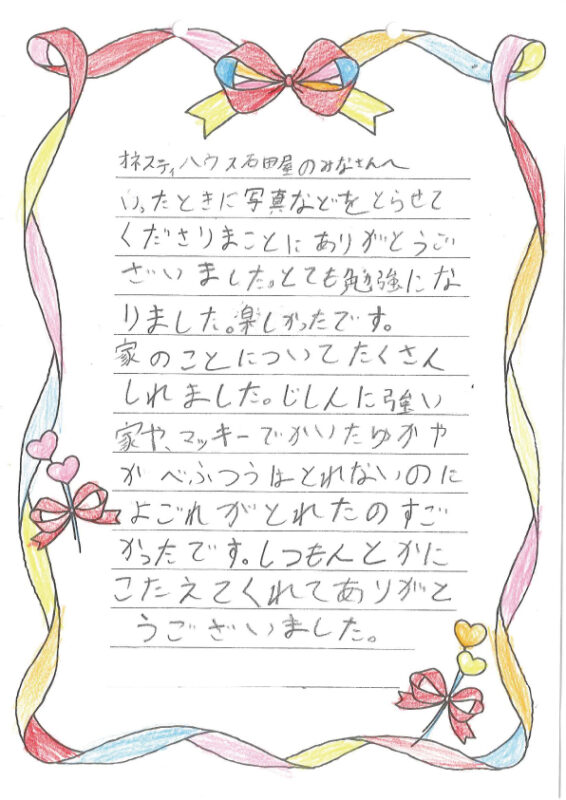 オネスティハウス石田屋のみなさんへ
いったときに写真などをとらせて
くださりまことにありがとうご
ざいました。とても勉強にな
りました。楽しかったです。
家のことについてたくさん
しれました。じしんに強い
家や、マッキーでかいたゆかや
かべふつうはとれないのに
よごれがとれたのすご
かったです。しつもんとかに
こたえてくれてありがと
うございました。